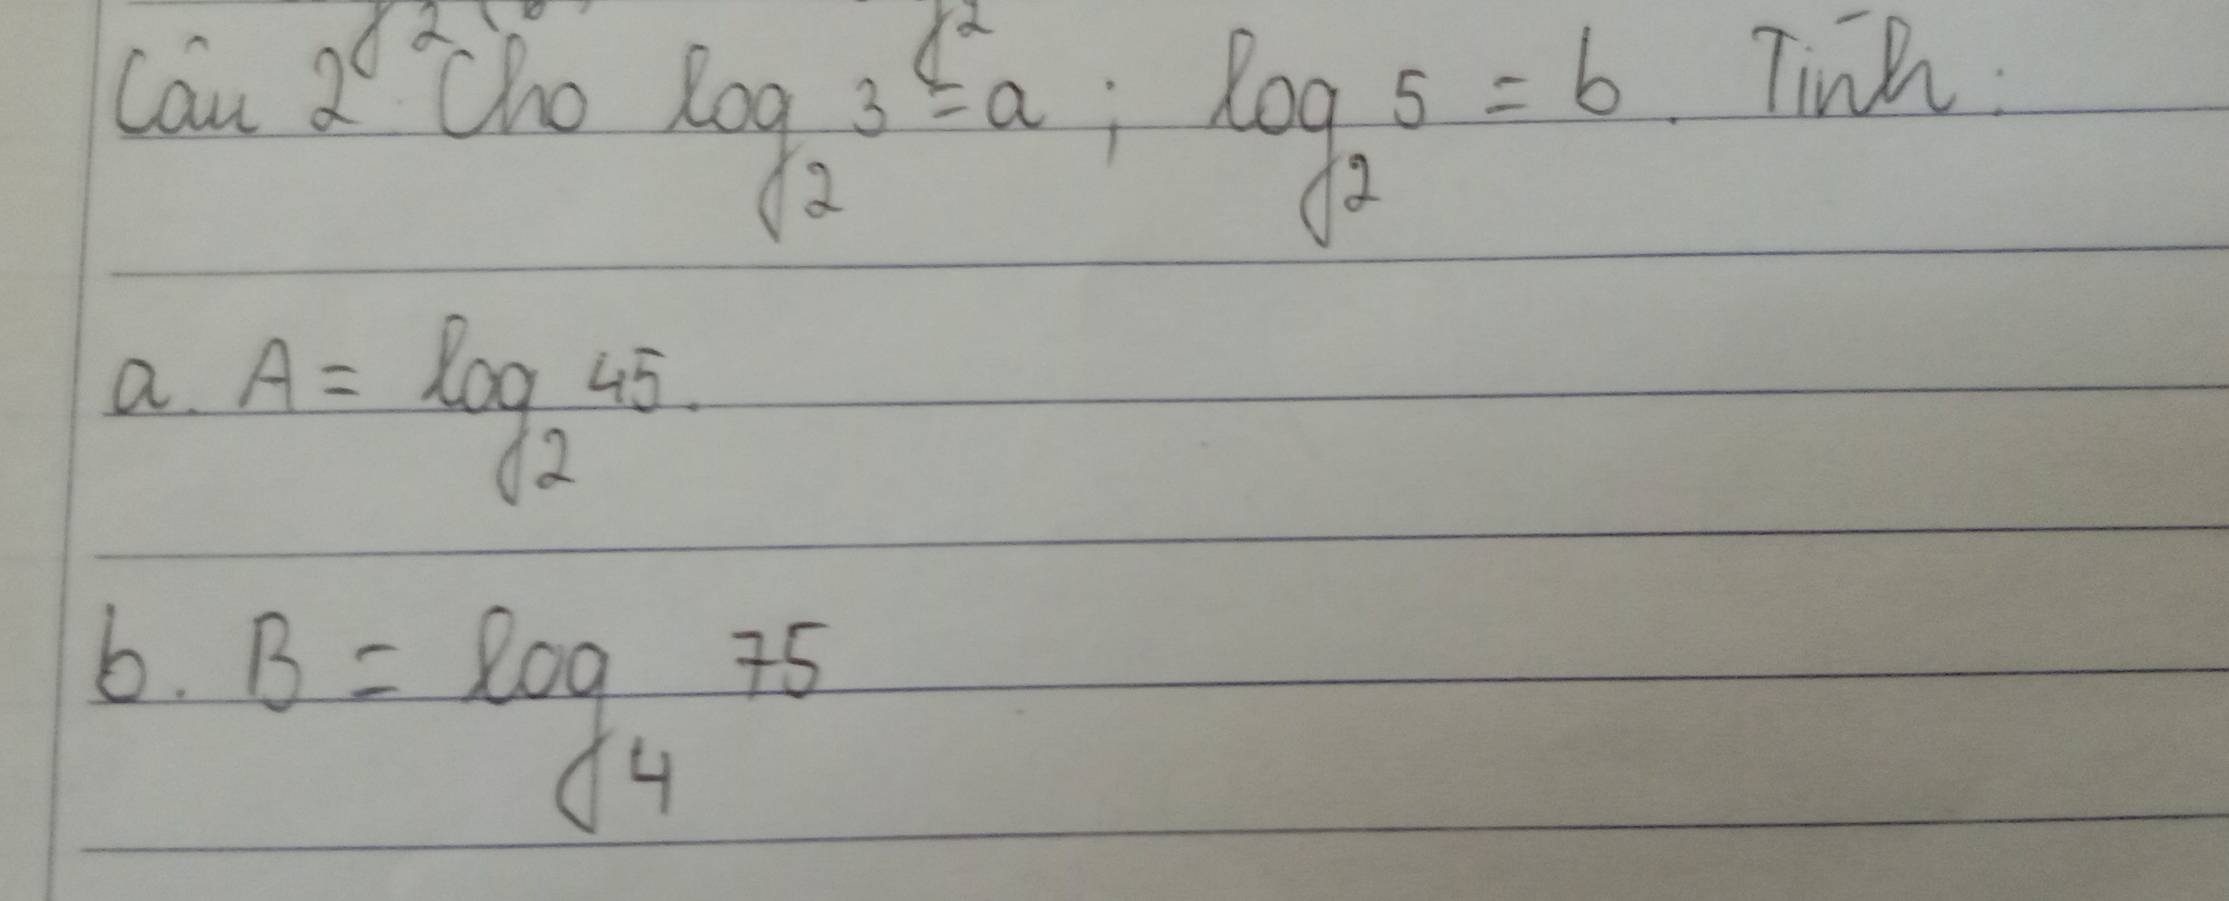 Câu 2. Cho log₂ 3 = a ; log₂ 5 = b. Tính:
a. A = log₂ 45.
b. B = log₄ 75